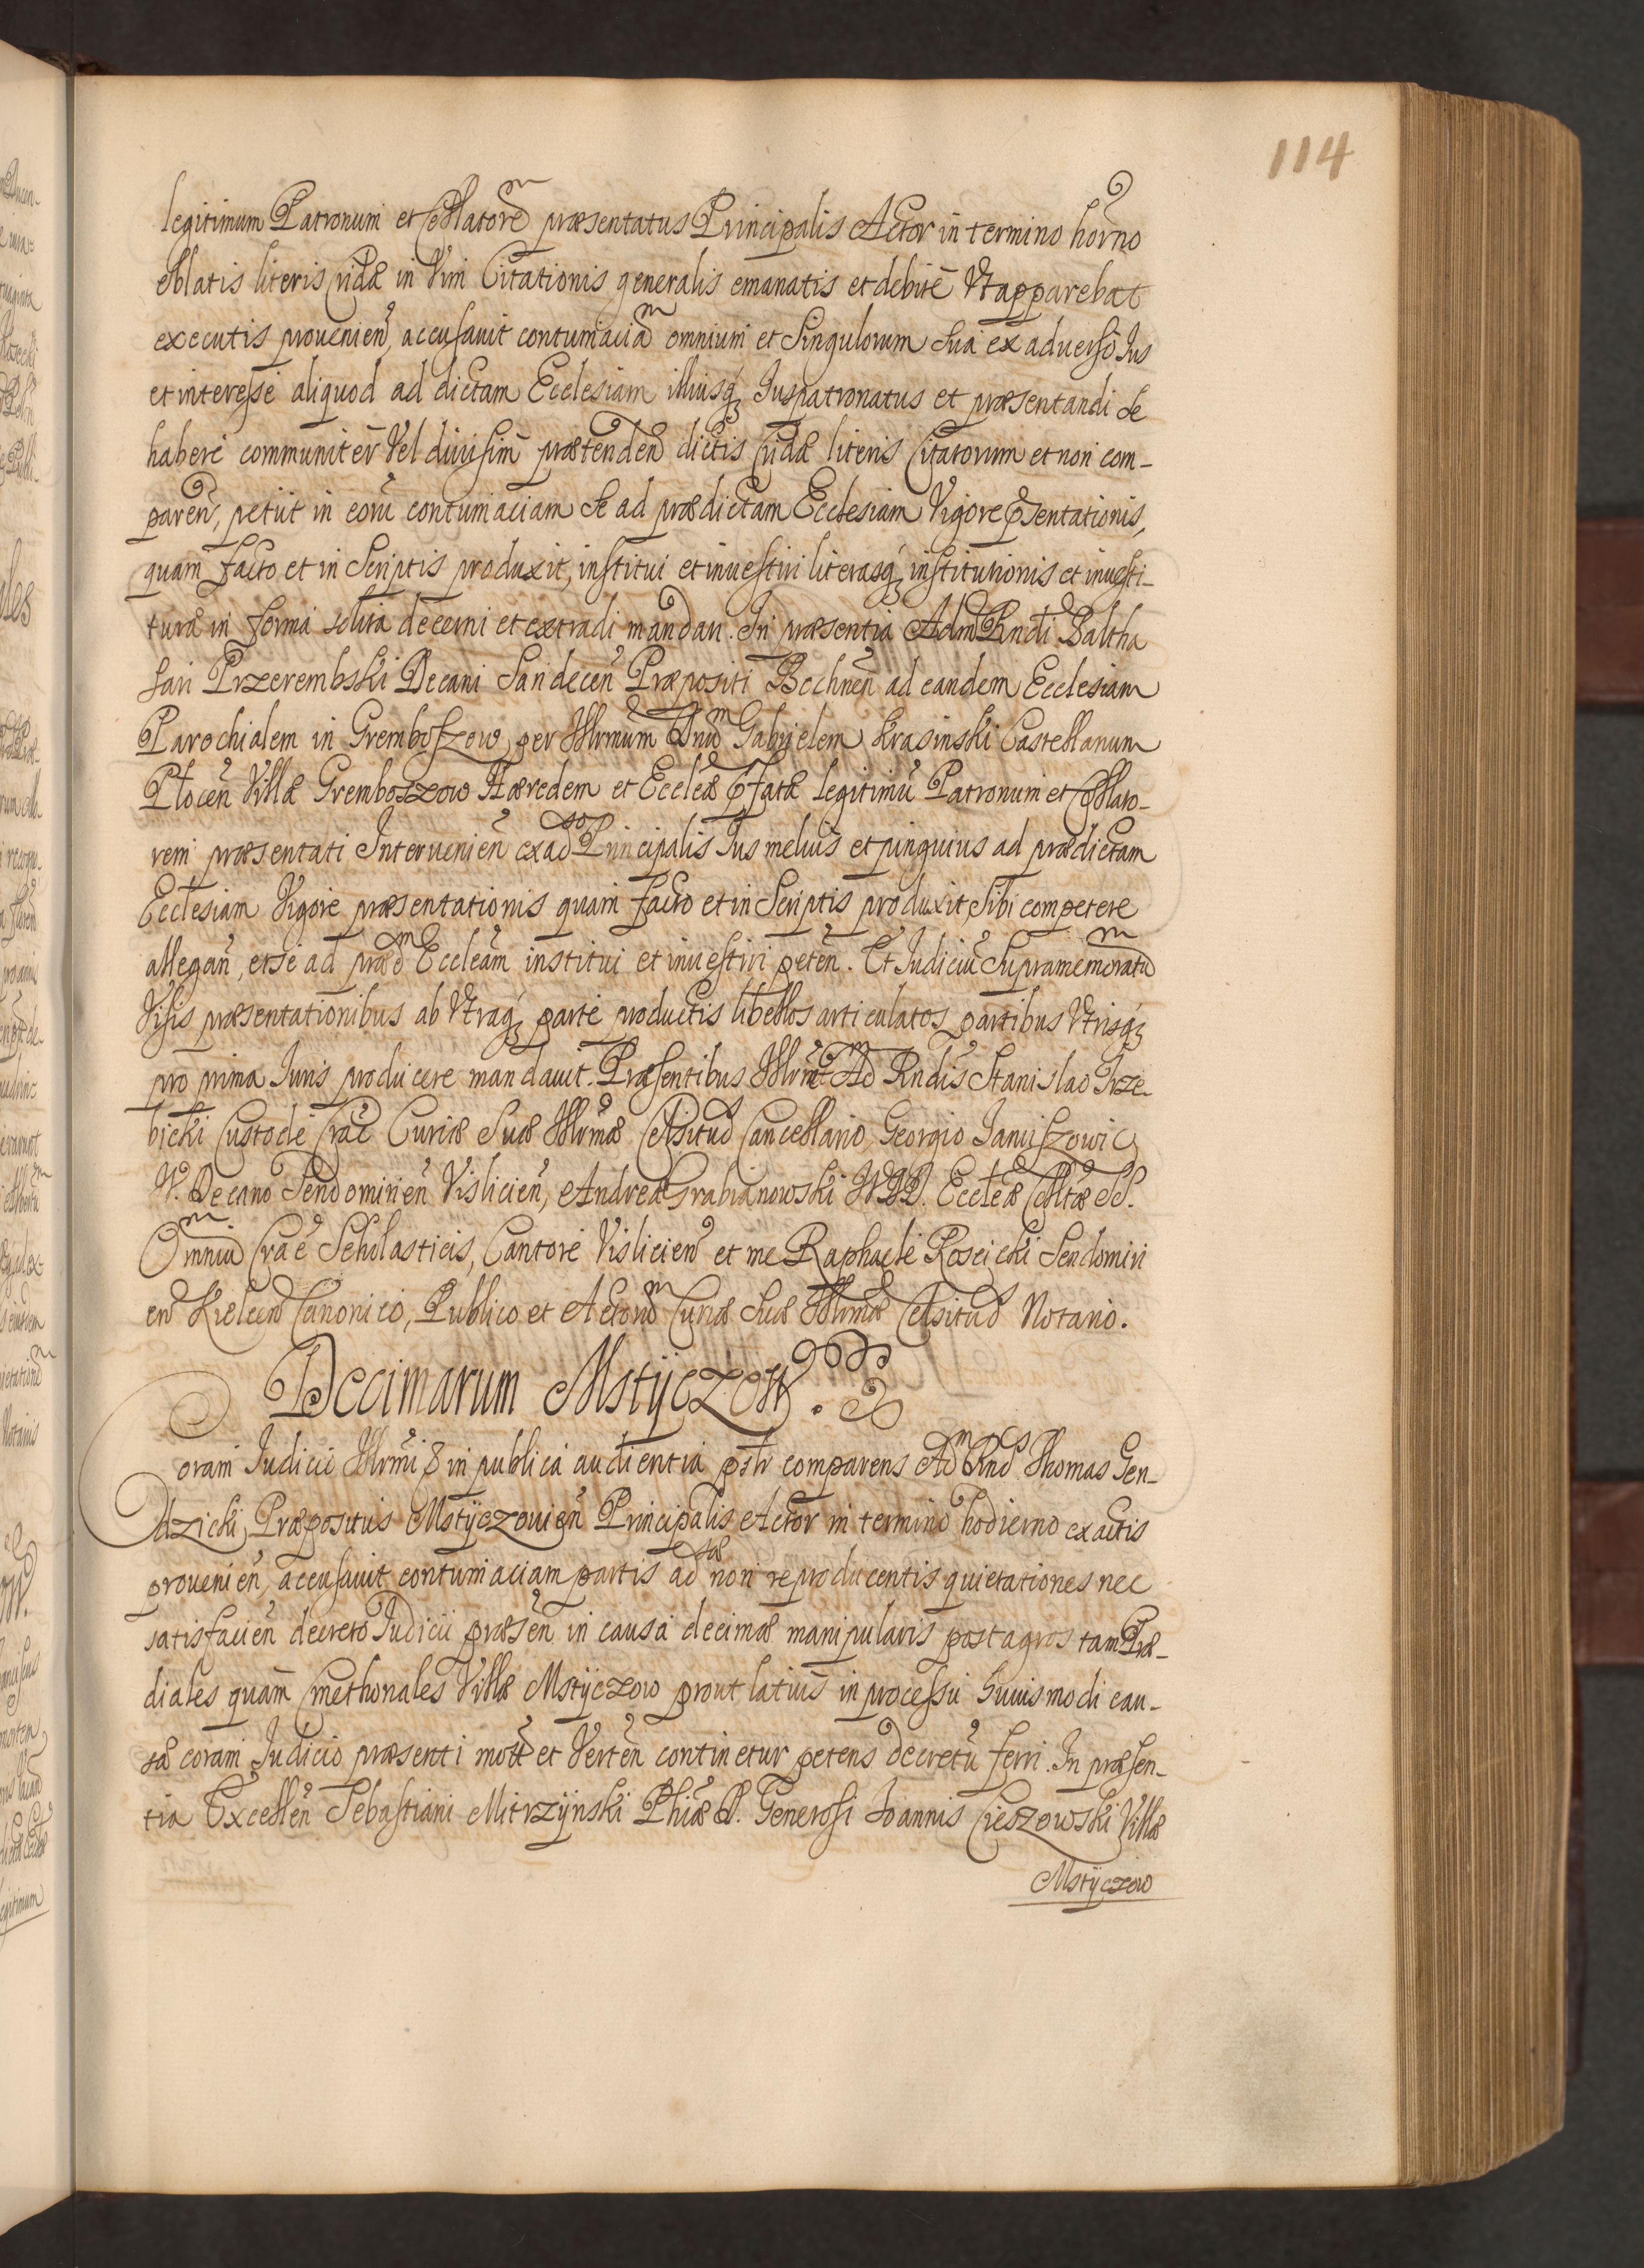 114
legitimum Patronum et Collatorẽ præsentatus Principalis Actor in termino horño
oblatis literis cridæ in Vim Citationis generalis emanatis et debitè Vt apparebat
executis prouenieñ, accusauit contumaciam omnium et singulorum sua ex aduerso Ius
et interesse aliquod ad dictam Ecclesiam illiusq3 Iuspatronatus et præsentandi se
habere communiter Vel diuisim prætendeñ dictis cridæ literis Citatorum et non com-
pareñ, petijt in eorũ contumaciam se ad prædictam Ecclesiam Vigore pñsentationis,
quam facto et in Scriptis produxit, institui et inuestiri literasq3 institutionis et inuesti-
turæ in forma solita decerni et extradi mandari. In præsentia Adm Rndi Baltha
sari Przerembski Decani Sandeceñ Præpositi Bochneñ ad eandem Ecclesiam
Parochialem in Gremboszow per Illrmum Dnũ Gabrielem Krasinski Castellanum
Ploceñ Villæ Gremboszow Hæredem et Eccleæ pfatæ legitimũ Patronum et Collato-
rem præsentati Interuenieñ ex adso Principalis Ius melius et pinguius ad prædictam
Ecclesiam Vigore præsentationis quam facto et in Scriptis produxit, sibi competere
allegañ, et se ad præd Eccleam institui et inuestiri peteñ. Et Iudiciũ Supramemoratũ
Visis præsentationibus ab Vtraq3 parte productis libellos articulatos partibus Vtrisq3
pro prima Iuris producere mandauit. Præsentibus Illrmt Ad Rndis Stanislao Trze-
bicki Custode Crac Curiæ Suæ Illrmæ Celsitud Cancellario, Georgio Ianuszowic
V. Decano Sendomirieñ Vislicieñ, Andrea Grabianowski IVD. Eccleæ Colltæ SS.
Omniũ Crac Scholasticis, Cantore Vislicieñ et me Raphaele Roscicki Sendomiri
eñ Kielceñ Canonico, Publico et Actorũ Curiæ Suæ Illrmæ Celsitud Notario.
Decimarum Mstyczow.
Coram Iudicio Illrmi & in publica audientia pñtr comparens Ad Rnd Thomas Gen-
dzicki, Præpositus Mstyczouieñ Principalis Actor in termino hodierno ex actis
prouenieñ, accusauit contumaciam partis adsæ non reproducentis quietationes nec
satisfacieñ decreto Iudicij præseñ in causa decimæ manipularis post agros tam Præ-
diales quam Cmethonales Villæ Mstyczow prout latius in processu huiusmodi cau-
sæ coram Iudicio præsenti mott et Verteñ continetur petens decretũ ferri. In præsen-
tia Excelleñ Sebastiani Mitrzynski Phiæ D. Generosi Ioannis Cieszowski Villæ
Mstyczow